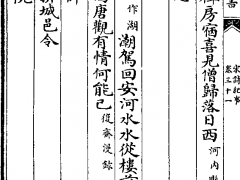 宋詩紀事
卷三十一
房宿喜見僧歸落日西 河内
作湖 潮駕回安河水水從樓前
唐觀有情何能已 復齋漫錄
城邑令